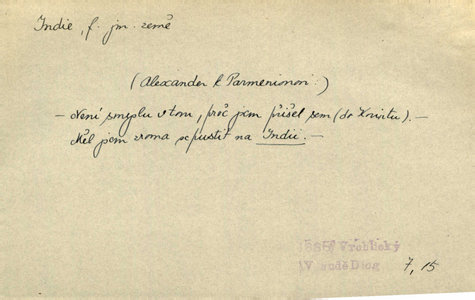 Indie, f. jm. země
(Alexander k Parmenionovi:)
— Není smyslu v tom, proč jsem přišel sem (do Korintu). —
Měl jsem zrovna se pustit na Indii. —
Vrchlický
V sudě Diog
7, 15